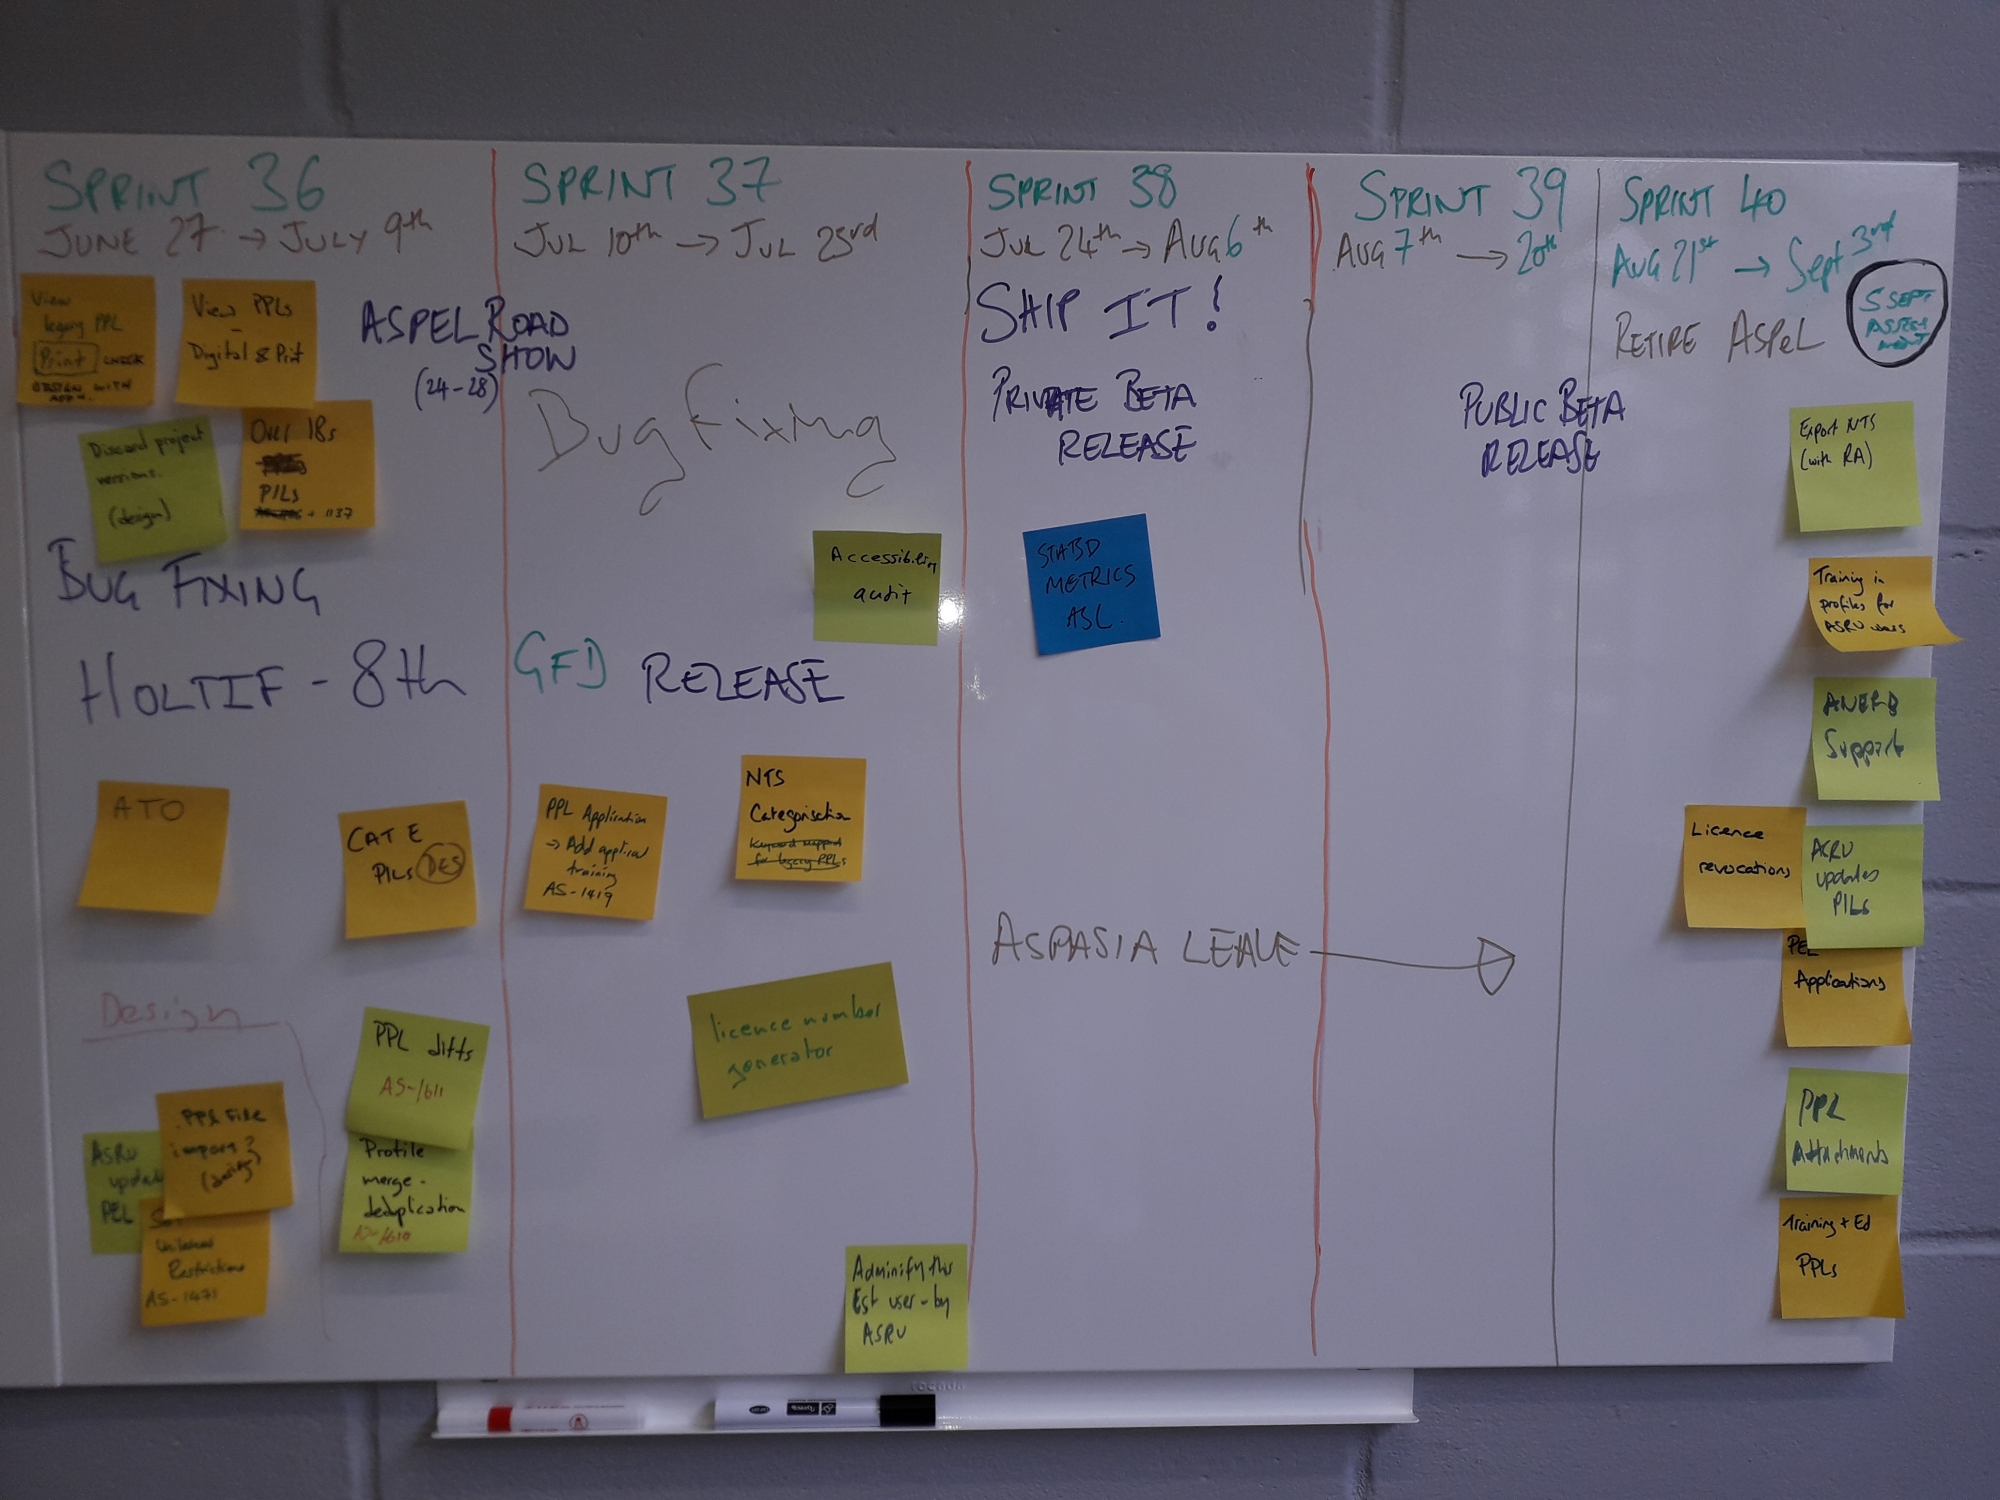 SPRINT 36
JUNE 27 → JULY 9th
View
legacy PPL
Print CHECK
DESIGN WITH
View PPLs
-
Digital & Print
ASPEL ROAD
SHOW
(24-28)
Discard project
versions.
(design)
Over 18s
PILs
+ 1137
BUG FIXING
HOLTIF - 8th
ATO
CAT E
PILs DES
Design
PPL diffs
AS-1611
Profile
merge -
deduplication
AS-1610
PPL File
import?
(design)
ASRU
PEL
Unilateral
Restrictions
AS-1471
SPRINT 37
JUL 10th → JUL 23rd
Bug Fixing
Accessibility
audit
GFD RELEASE
PPL Application
→ Add applical
training
AS-1419
NTS
Categorisation
Keyword mapped
for legacy PPLs
licence number
generator
Adminify this
Est user - by
ASRU
SPRINT 38
JUL 24th → AUG 6th
SHIP IT!
PRIVATE BETA
RELEASE
METRICS
ASL.
ASPASIA LEAVE →
SPRINT 39
AUG 7th → 20th
PUBLIC BETA
RELEASE
SPRINT 40
AUG 21st → Sept 3rd
RETIRE ASPeL
5 SEPT
ASSESS
MENT
Export NTS
(with RA)
Training in
profiles for
ASRU users
Support
Licence
revocations
ASRU
updates
PILs
PEL
Applications
PPL
Attachments
Training + Ed
PPLs